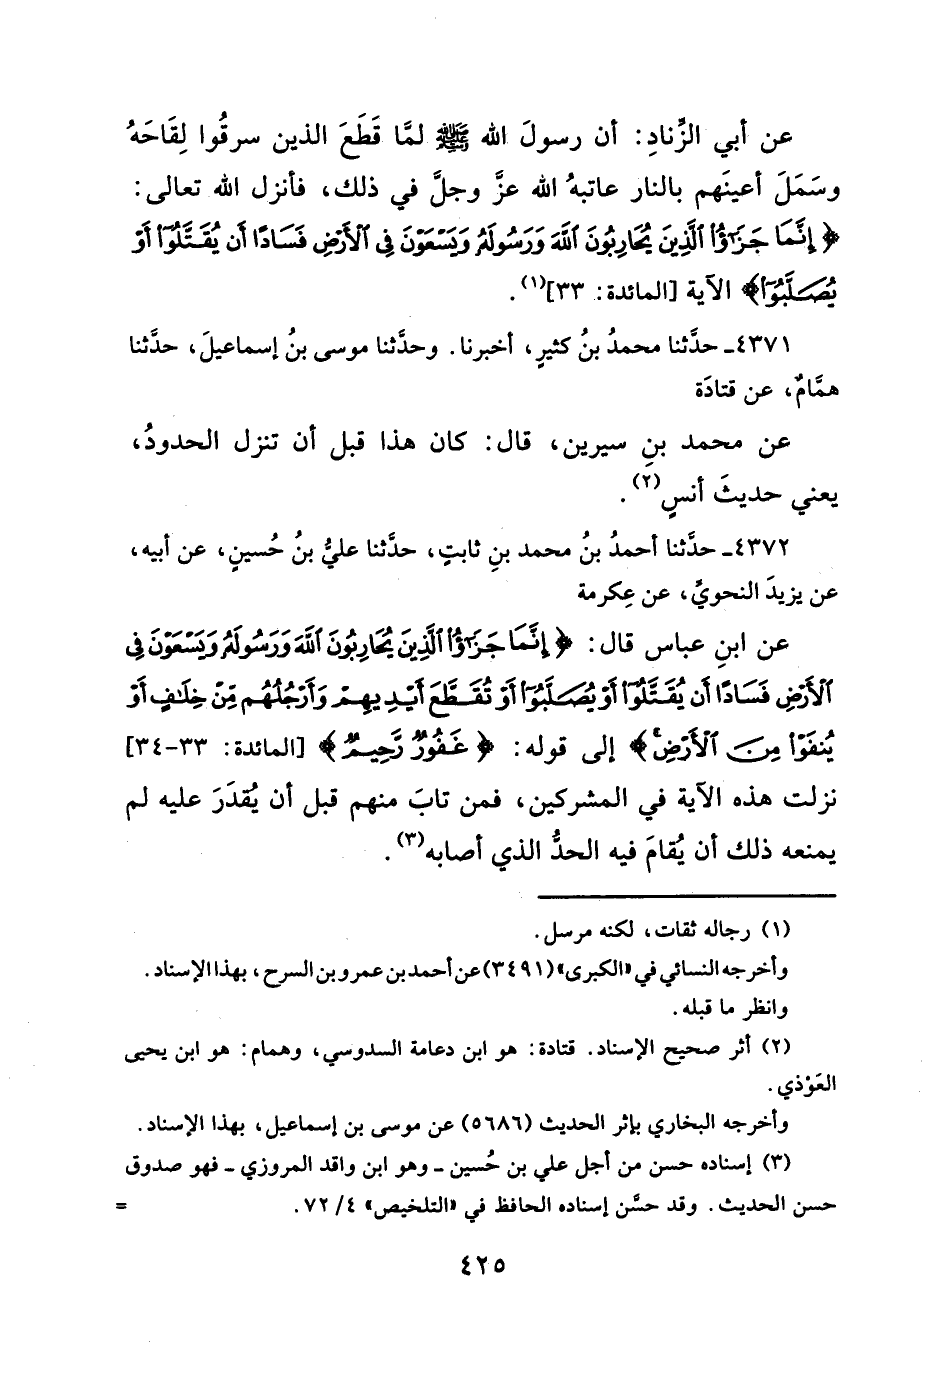 عن أبي الزِّنادِ: أن رسولَ الله ﷺ لمَّا قَطَعَ الذين سرقُوا لِقَاحَهُ
وسَمَلَ أعينَهم بالنار عاتبهُ الله عزَّ وجلَّ في ذلك، فأنزل الله تعالى:
﴿إِنَّمَا جَزَٰٓؤُا۟ ٱلَّذِينَ يُحَارِبُونَ ٱللَّهَ وَرَسُولَهُۥ وَيَسْعَوْنَ فِى ٱلْأَرْضِ فَسَادًا أَن يُقَتَّلُوٓا۟ أَوْ
يُصَلَّبُوٓا۟﴾ الآية [المائدة: ٣٣](١).
٤٣٧١ـ حدَّثنا محمدُ بنُ كثيرٍ، أخبرنا. وحدَّثنا موسى بنُ إسماعيلَ، حدَّثنا
همَّامٌ، عن قتادَة
عن محمد بنِ سيرين، قال: كان هذا قبل أن تنزل الحدودُ،
يعني حديثَ أنسٍ(٢).
٤٣٧٢ـ حدَّثنا أحمدُ بنُ محمد بنِ ثابتٍ، حدَّثنا عليُّ بنُ حُسينٍ، عن أبيه،
عن يزيدَ النحويِّ، عن عِكرمة
عن ابنِ عباس قال: ﴿إِنَّمَا جَزَٰٓؤُا۟ ٱلَّذِينَ يُحَارِبُونَ ٱللَّهَ وَرَسُولَهُۥ وَيَسْعَوْنَ فِى
ٱلْأَرْضِ فَسَادًا أَن يُقَتَّلُوٓا۟ أَوْ يُصَلَّبُوٓا۟ أَوْ تُقَطَّعَ أَيْدِيهِمْ وَأَرْجُلُهُم مِّنْ خِلَٰفٍ أَوْ
يُنفَوْا۟ مِنَ ٱلْأَرْضِ ۚ﴾ إلى قوله: ﴿غَفُورٌ رَّحِيمٌ﴾ [المائدة: ٣٣-٣٤]
نزلت هذه الآية في المشركين، فمن تابَ منهم قبل أن يُقدَرَ عليه لم
يمنعه ذلك أن يُقامَ فيه الحدُّ الذي أصابه(٣).
(١) رجاله ثقات، لكنه مرسل.
وأخرجه النسائي في «الكبرى» (٣٤٩١) عن أحمد بن عمرو بن السرح، بهذا الإسناد.
وانظر ما قبله.
(٢) أثر صحيح الإسناد. قتادة: هو ابن دعامة السدوسي، وهمام: هو ابن يحيى
العَوْذي.
وأخرجه البخاري بإثر الحديث (٥٦٨٦) عن موسى بن إسماعيل، بهذا الإسناد.
(٣) إسناده حسن من أجل علي بن حُسين ـ وهو ابن واقد المروزي ـ فهو صدوق
حسن الحديث. وقد حسَّن إسناده الحافظ في «التلخيص» ٤/ ٧٢. =
٤٢٥